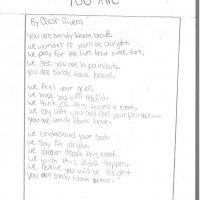 You Are
By Oscar Rivera
you are sandy Hook brave.
we wonder if you'll be alright.
we pray for the lives that were lost.
we see you are in pain but.
you are sandy Hook brave.
we feel your grief.
we hope you will rebuild.
we think of this event.
we cry with you and feel your pain
you are sandy Hook brave.
we understand your sad.
we say I'm alright
we dream about this event.
we wish this didn't happen.
we believe you will be alright
you are sandy Hook brave.